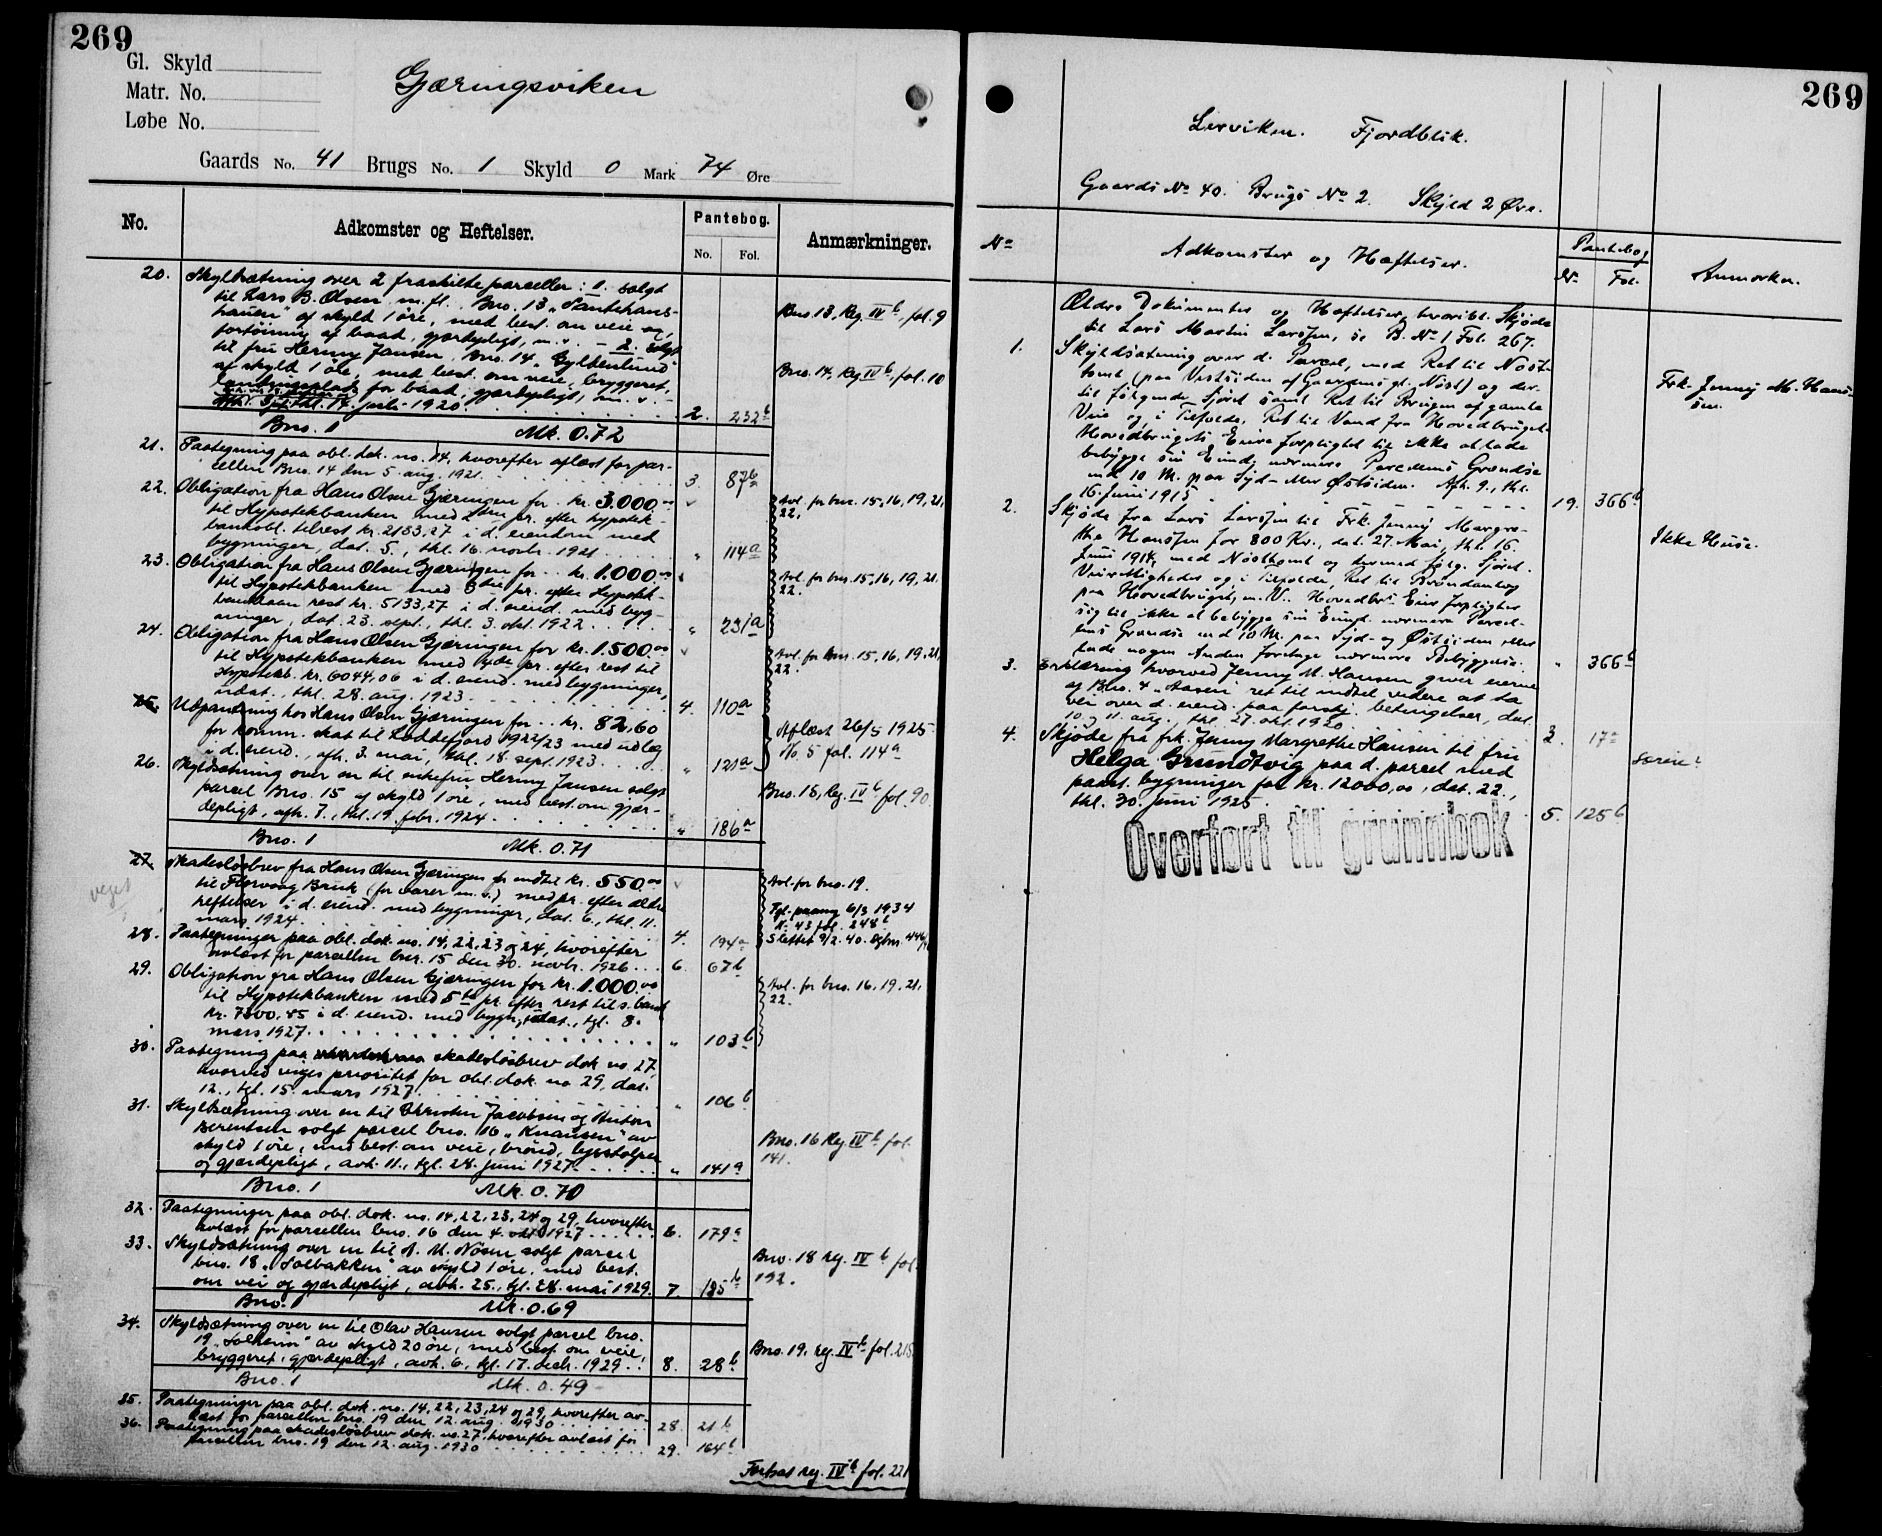 269
Gl. Skyld
Matr. No.
Løbe No.
Gjæringsviken
Gaards No. 41 Brugs No. 1 Skyld 0 Mark 74 Øre
No.
Adkomster og Heftelser.
Pantebog.
No. Fol.
Anmærkninger.
20. Skyldsætning over 2 fraskilte parceller: 1. solgt
til Lars B. Olsen m. fl. Bno. 13 „Santehans-
haugen" af skyld 1 øre, med best. om veie og
fortøining af baad, gjærdepligt, m. v. - 2. solgt
til fru Hermy Jansen, Bno. 14 „Gyldenlund"
af skyld 1 øre, med best. om veie, bryggeret,
landingsplads for baad, gjærdepligt, m. v. -
thl. 14. juli 1920. 2. 232b
Bno. 13, Reg. IVb, fol. 9
Bno. 14, Reg IVb, fol. 10
Bno. 1 Mk. 0.72
21. Paategning paa obl. dok. no. 14, hvorefter aflæst for par-
cellen Bno. 14 den 5 aug. 1921. 3. 87b
22. Obligation fra Hans Olsen Gjæringen for kr. 3.000.00
til Hypotekbanken med 2den pr. efter hypotek-
bankobl. tilrest kr. 2133,27 i d. eiendom med
bygninger, dat. 5., thl. 16. novbr. 1921 " 114a
Avl. for bno. 15, 16, 19, 21,
22.
23. Obligation fra Hans Olsen Gjæringen for kr. 1.000.00
til Hypotekbanken med 3die pr. efter Hypotek-
banklaan rest kr. 5133,27 i d. eiend. med byg-
ninger, dat. 23. sept., thl. 3. okt. 1922 " 231a
Avl. for bno. 15, 16, 19, 21,
22.
24. Obligation fra Hans Olsen Gjæringen for kr. 1.500.00
til Hypotekbanken med 4de pr. efter rest til
Hypotekb. kr. 6044,06 i d. eiend. med bygninger,
udat., thl. 28. aug. 1923 4. 110a
Avl. for bno. 15, 16, 19, 21,
22.
25. Udpantning hos Hans Olsen Gjæringen for kr. 82,60
for komm. skat til Loddefjord 1922/23 med udlæg
i d. eiend., afh. 3. mai, thl. 18. sept. 1923 " 121a
Aflæst 26/5 1925
No. 5 fol. 114a
26. Skyldsætning over en til enkefru Hermy Jansen solgt
parcel Bno. 15 af skyld 1 øre, med best. om gjær-
depligt, afh. 7., thl. 19. febr. 1924 " 186a
Bno. 15, Reg. IVb fol. 90
Bno. 1 Mk. 0.71
27. Skadesløsbrev fra Hans Olsen Gjæringen for indtil kr. 550.00
til Florvaag Bruk (for varer m. v.) med pr. efter ældre
heftelser i d. eiend. med bygninger, dat. 6., thl. 11.
mars 1924. 4. 194a
Avl. for bno. 19.
Tgl. paateg 6/3 1934
N. 43 fol. 248b
Slettet 9/2. 40.
28. Paategninger paa obl. dok. no. 14, 22, 23 og 24, hvorefter
avlæst for parcellen bno. 15 den 30. novbr. 1926 6. 67b
29. Obligation fra Hans Olsen Gjæringen for kr. 1.000.00
til Hypotekbanken med 5te pr. efter rest til s. bank
kr. 7300.85 i d. eiend. med bygn., udat., tgl. 8.
mars 1927. " 103b
Avl. for bno. 16, 19, 21,
22.
30. Paategning paa skadesløsbrev dok no. 27,
hvorved viges prioritet for obl. dok. no 29, dat.
12., tgl. 15. mars 1927. " 106b
31. Skyldsætning over en til Christen Jacobsen og Anton
Berentsen solgt parcel bno. 16 „Knausen" av
skyld 1 øre, med best. om veie, brønd, lysstolper
og gjærdepligt, avh. 11., tgl. 28. juni 1927. " 141a
Bno. 16 Reg. IVb fol.
141.
Bno. 1 Mk. 0.70
32. Paategninger paa obl. dok. no. 14, 22, 23, 24 og 29, hvorefter
avlæst for parcellen bno. 16 den 4. okt. 1927 6. 179a
33. Skyldsætning over en til A. M. Nøsen solgt parcel
bno. 18 „Solbakken" av skyld 1 øre, med best.
om vei og gjærdepligt, avh. 25., tgl. 28. mai 1929. 7 185b
Bno. 18 Reg. IVb fol.
192.
Bno. 1 Mk. 0.69
34. Skyldsætning over en til Olav Hansen solgt parcel bno.
19 „Solheim" av skyld 20 øre, med best. om veie,
bryggeret, gjærdepligt, avh. 6., tgl. 17. decb. 1929 8. 28b
Bno. 19, Reg. IVb fol. 215.
Bno. 1 Mk. 0.49
35. Paategninger paa obl. dok. no. 14, 22, 23, 24 og 29, hvorefter av-
læst for parcellen bno. 19 den 12. aug. 1930 28. 21b
36. Paategning paa skadesløsbrev dok. no. 27, hvorefter avlæst for
parcellen bno. 19 den 12. aug. 1930 29. 164b
Fortsat reg. IVb fol. 221
269
Lerviken. Fjordblik.
Gaards No 40. Brugs No 2. Skyld 2 Øre.
No
Adkomster og Hæftelser.
Pantebog
Nr. Fol.
Anmerkn.
Ældre Dokumenter og Hæftelser, hvoribl. Skjøde
til Lars Martin Larssen, se B. No 1 Fol. 267.
1. Skyldsætning over d. Parcel, med Ret til Nøst-
tomt (paa Vestsiden af Gaardens gl. Nøst) og der-
til følgende Sjøret samt Ret til Brugen af gamle
Veie og, i Tilfælde, Ret til Vand fra Hovedbruget.
Hovedbrugets Eiere forpligtet til ikke at lade
bebygge sin Eiend. nærmere Parcellens Grændse
end 10 M. paa Syd- eller Østsiden. Afh. 9., thl.
16. juni 1915 19. 366b
Frk. Jenny M. Hans-
sen.
2. Skjøde fra Lars Larssen til Frk. Jenny Margre-
the Hanssen for 800 Kr., dat. 27. Mai, thl. 16.
Juni 1915, med Nøsttomt og dermed følg. Sjøret.
Veirettigheder og, i Tilfælde, Ret til Brøndanlæg
paa Hovedbruget, m. V. Hovedbr. Eier forpligter
sig til ikke at bebygge sin Eiend. nærmere Parcel-
lens Grændse end 10 M. paa Syd- og Østsiden eller
lade nogen Anden foretage nærmere Bebyggelse. " 366b
Ikke Huse.
3. Erklæring hvorved Jenny M. Hansen giver eierne
af Bno. 4 „Aasen" ret til indtil videre at ha
vei over d. eiend. paa forskj. betingelser, dat.
10 og 11. aug., thl. 27. okt. 1920 2. 17a
4. Skjøde fra frk. Jenny Margrethe Hansen til fru
Helga Grundtvig paa d. parcel med
paast. bygninger for kr. 12000,00, dat. 22.,
thl. 30. juni 1925. 5. 125b
Overført til grunnbok